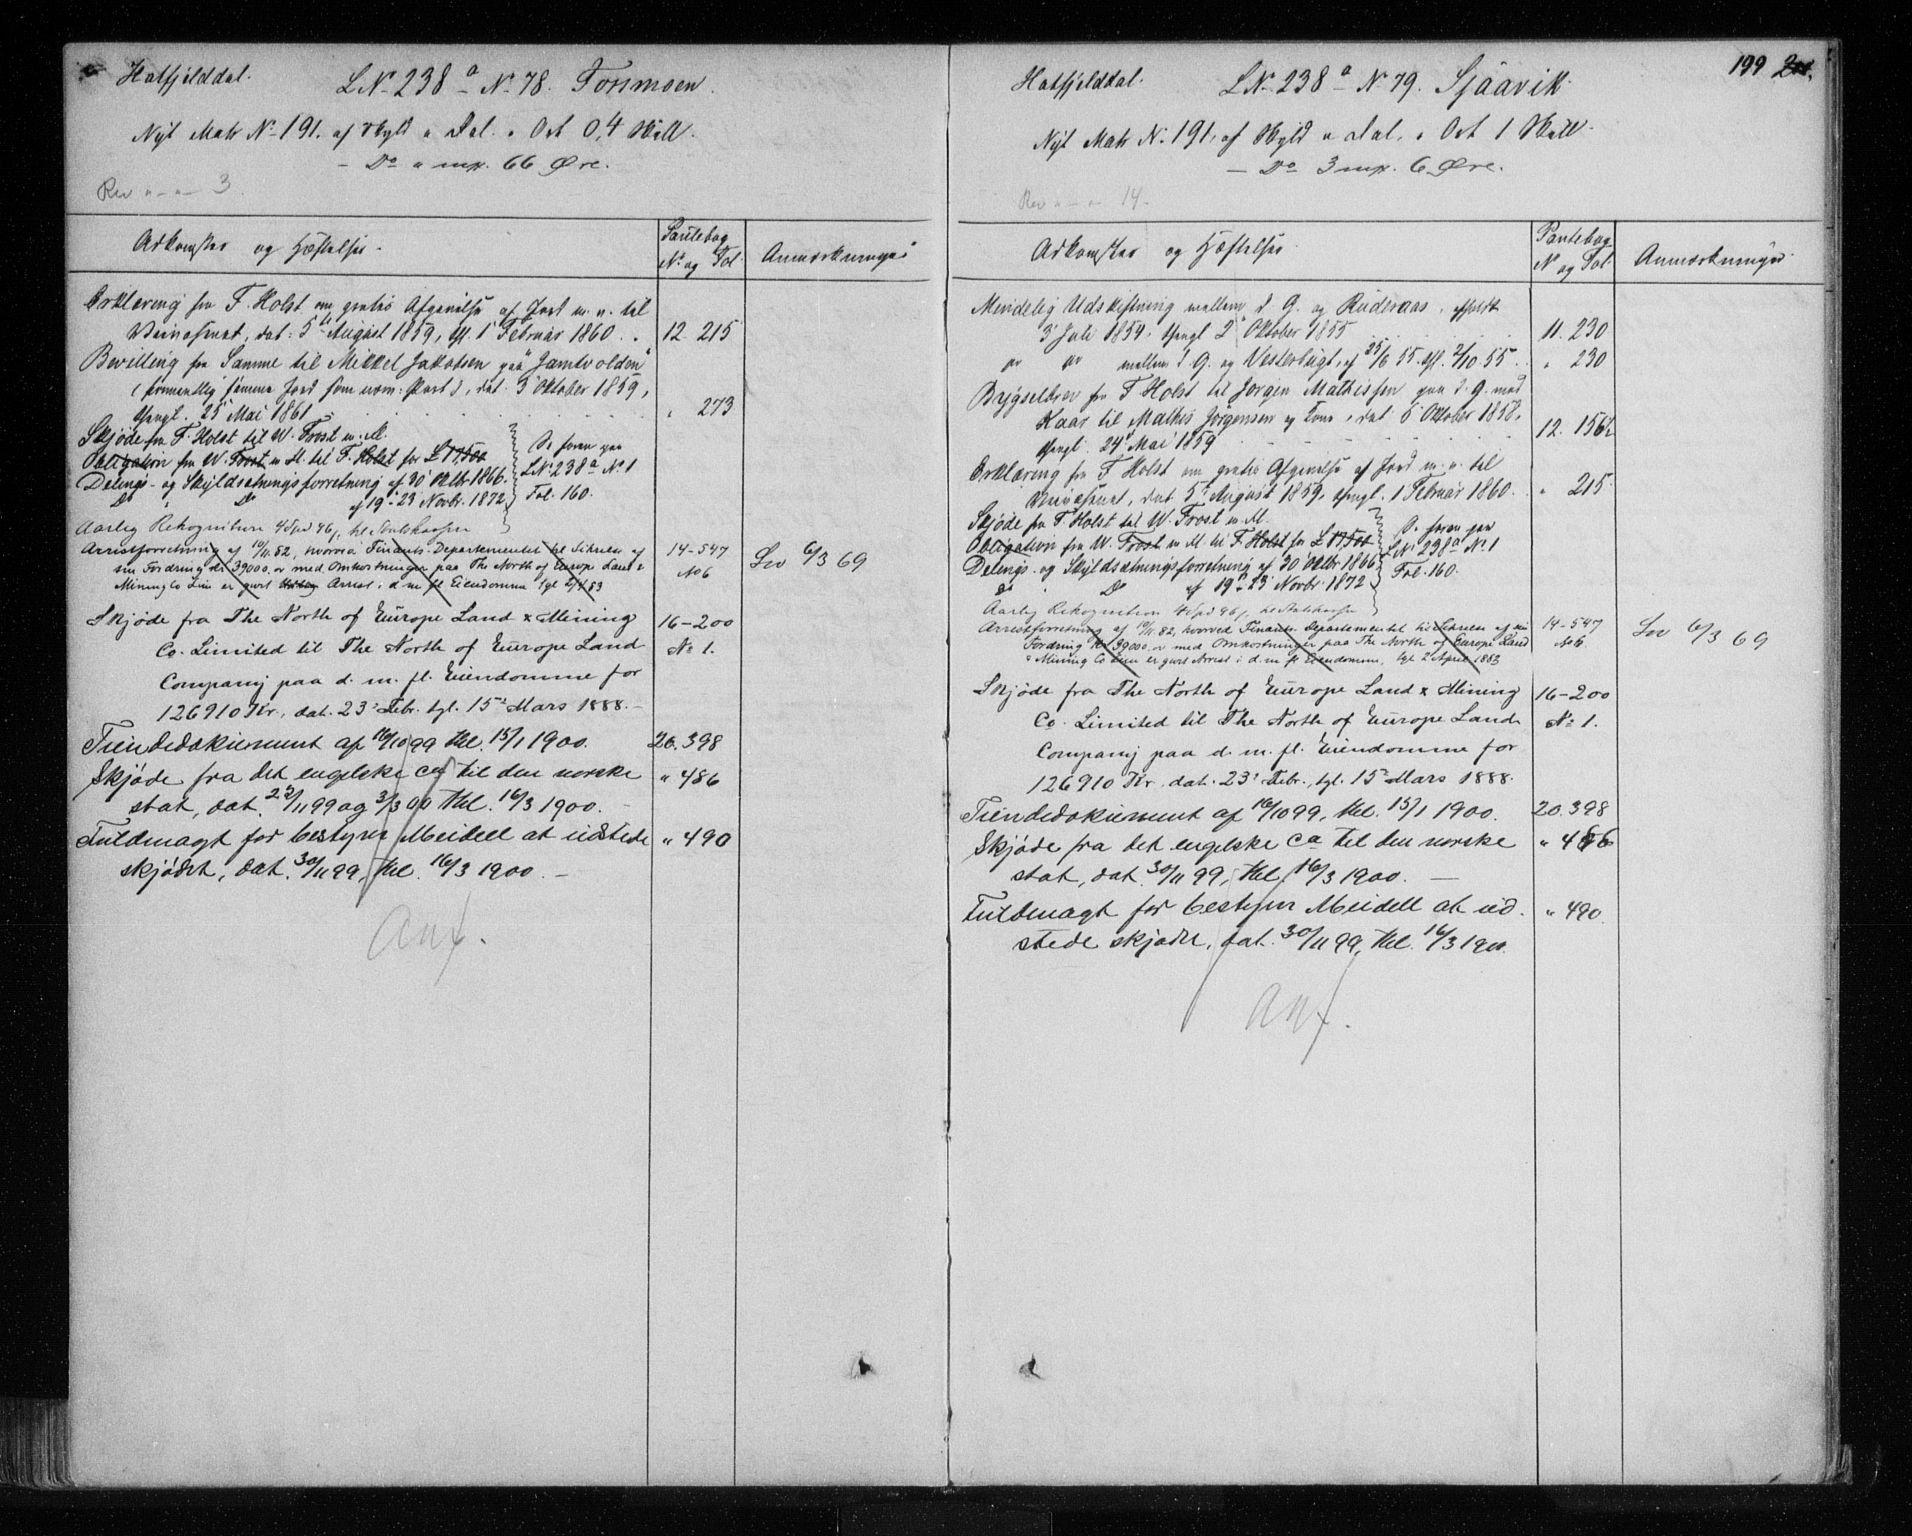 Hatfjelddal.
L.No 238 a No 78. Forsmoen.
Nyt Matr No 191. af Skyld " Dal. " Ort 0,4 Skill.
— Do " mp. 66 Øre.
Rev " - " - 3.
Adkomster og Hæftelser.
Pantebog
No og Fol.
Anmærkninger
Erklæring fra F. Holst om gratis Afgivelse af Jord m. v. til
dat: 5te August 1859, tgl. 1 Februar 1860 . .
12 215
Bevilling fra Samme til Mikkel Jakobsen paa "Jamtvolden"
(formentlig samme Jord som nom: Part), dat. 3 Oktober 1859,
thingl. 25 Mai 1861
" 273
Skjøde fra F. Holst til W. Frost m. Fl.
Obligation fra W. Frost m. Fl. til F. Holst for £ 17,500
Delings- og Skyldsætningsforretning af 30 Oktbr 1866.
Do " Do af 19-23 Novbr. 1872
Se foran paa
LNo 238 a No 1
Fol. 160.
Aarlig Rekognition 4 Spd 96 s, til
Arrestforretning af 10/11 82, hvorved Finants-Departementet til Sikrelse af
sin Fordring Kr 39000. " med Omkostninger paa The North of Europe Land &
Mining Co Lim er gjort Arrest i d. m. fl. Eiendomme tgl 2/4 83
14-547
No 6
6/3 69
Skjøde fra The North of Europe Land & Mining
Co. Limited til The North of Europe Land
Company paa d. m. fl. Eiendomme for
126910 Kr., dat. 23' Febr. tgl. 15' Mars 1888.
16-200
No 1.
Tiendedokument af 16/10 99 thl. 15/1 1900.
20. 398
Skjøde fra det engelske co til den norske
stat, dat. 23/11 99 og 3/3 00 thl. 16/3 1900.
" 486
Fuldmagt for bestyrer Meidell at udstede
skjødet, dat. 30/11 99, thl. 16/3 1900. —
" 490
Anf.
199
Hatfjelddal.
L.No 238 a No 79. Sjåavik.
Nyt Matr No 191, af Skyld " Dal. " Ort 1 Skill.
— Do 3 mp. 6 Øre.
Rev " - " - 14.
Adkomster og Hæftelser.
Pantebog
No og Fol.
Anmærkninger.
Mindelig Udskiftning mellem d. G. og Ruderaas, afholdt
3 Juli 1854, thingl 2 Oktober 1855
11. 230
mellem d. G. og Vesterbugt, af 25/6 55. tgl. 2/10 55
" 230
Bygselbrev fra F. Holst til Jørgen Mathissen paa d. G. med
Kaar til Mathis Jørgensen og Kone, dat 6 Oktober 1858,
thingl. 24 Mai 1859
12. 156
Erklæring fra F. Holst om gratis Afgivelse af Jord m. v. til
dat 5 August 1859, thingl. 1 Februar 1860.
" 215
Skjøde fra F. Holst til W. Frost m. Fl.
Obligation fra W. Frost m. Fl. til F. Holst for £ 17,500
Delings- og Skyldsætningsforretning af 30 Oktbr 1866
Do " Do af 19-23 Novbr. 1872
Se foran paa
LNo 238 a No 1
Fol. 160.
Aarlig Rekognition 4 Spd 96 s, til
Arrestforretning af 10/11 82, hvorved Finants-Departementet til Sikrelse af sin
Fordring Kr 39000. " med Omkostninger paa The North of Europe Land
& Mining Co Lim er gjort Arrest i d. m. fl. Eiendomme, tgl 2 April 1883
14-547
No 6
6/3 69
Skjøde fra The North of Europe Land & Mining
Co. Limited til The North of Europe Land
Company paa d. m. fl. Eiendomme for
126910 Kr. dat. 23' Febr., tgl. 15' Mars 1888.
16-200
No 1.
Tiendedokument af 16/10 99, thl. 15/1 1900.
20. 398
Skjøde fra det engelske co til den norske
stat, dat. 30/11 99, thl. 16/3 1900. —
" 486
Fuldmagt for bestyrer Meidell at ud-
stede skjøde, dat. 30/11 99, thl. 16/3 1900.
" 490
Anf.